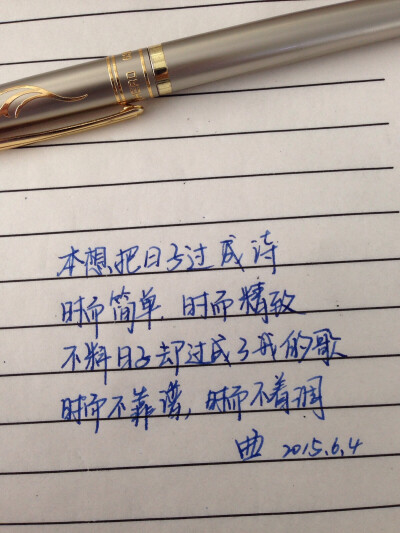 本想把日子过成诗
时而简单 时而精致
不料日子却过成了我的歌
时而不靠谱，时而不着调
曲 2015.6.4